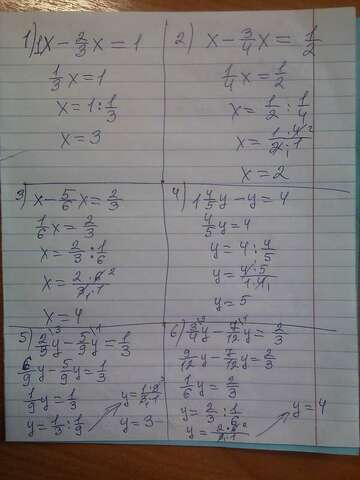 1) 1x - 2/3x = 1
1/3x = 1
x = 1 : 1/3
x = 3
2) x - 3/4x = 1/2
1/4x = 1/2
x = 1/2 : 1/4
x = 1·4²/2₁·1
x = 2
3) x - 5/6x = 2/3
1/6x = 2/3
x = 2/3 : 1/6
x = 2·6²/3₁·1
x = 4
4) 1 4/5y - y = 4
4/5y = 4
y = 4 : 4/5
y = 4·5/1·4₁
y = 5
5) 2/3\³y - 5/9\¹y = 1/3
6/9y - 5/9y = 1/3
1/9y = 1/3
y = 1/3 : 1/9
y = 1·9³/3₁·1
y = 3
6) 3/4\³y - 7/12\¹y = 2/3
9/12y - 7/12y = 2/3
1/6y = 2/3
y = 2/3 : 1/6
y = 2·6²/3₁·1
y = 4